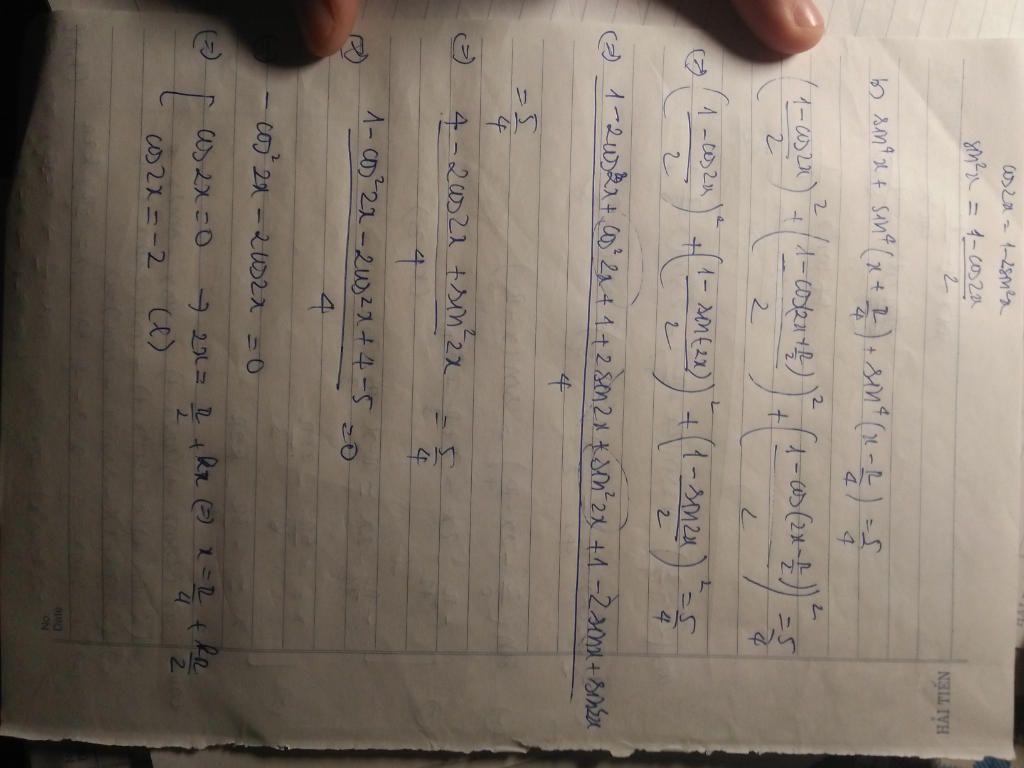 cos2x = 1-2sin²x
sin²x = (1-cos2x)/2
HẢI TIẾN
b) sin⁴x + sin⁴(x + π/4) + sin⁴(x - π/4) = 5/4
((1-cos2x)/2)² + ((1-cos(2x+π/2))/2)² + ((1-cos(2x-π/2))/2)² = 5/4
(=) ((1-cos2x)/2)² + ((1-sin(-2x))/2)² + ((1-sin2x)/2)² = 5/4
(=) (1-2cos2x + cos²2x + 1 + 2sin2x + sin²2x + 1 - 2sin2x + sin²2x)/4
= 5/4
(=) (4 - 2cos2x + sin²2x)/4 = 5/4
(=) (1-cos²2x - 2cos2x + 4 - 5)/4 = 0
- cos²2x - 2cos2x = 0
(=) [ cos2x = 0 → 2x = π/2 + kπ (=) x = π/4 + kπ/2
cos2x = -2 (l)
No
Date